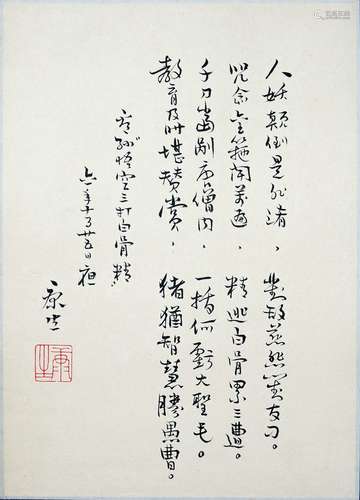 人妖颠倒是非淆，對敌慈悲對友刁。
咒念金箍闻萬遍，精逃白骨累三遭。
千刀當剮唐僧肉，一拔何虧大聖毛。
教育及时堪赞赏，猪猶智慧勝愚曹。
看孙悟空三打白骨精
六一年十月廿五日夜
康生